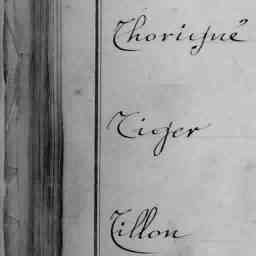 Thorigné
Tiger
Tillon